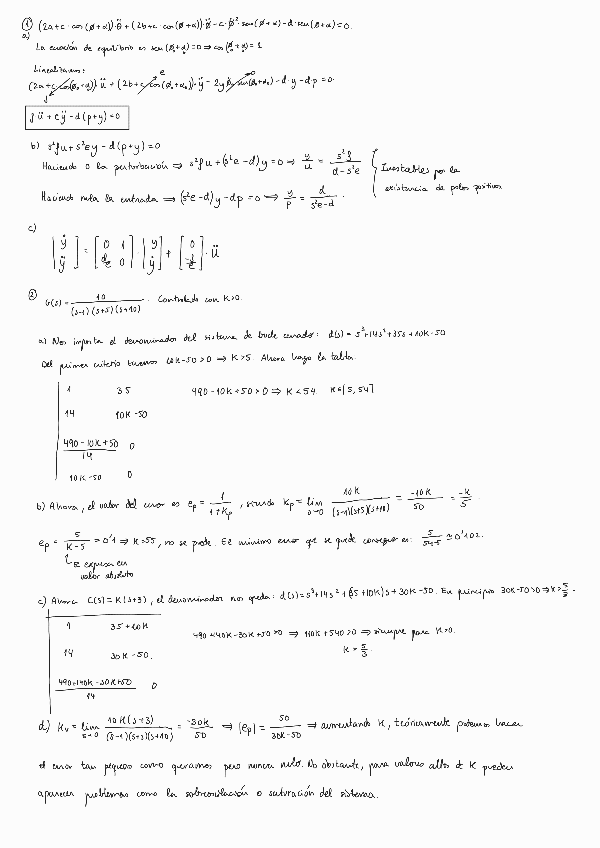 ① (2a+c·cos(ø+α))·θ̈ + (2b+c·cos(ø+α))·ø̈ - c·ø̇²·sen(ø+α) - d·sen(θ+α) = 0.
a)
La ecuación de equilibrio es sen(ø₀+α₀) = 0 ⇒ cos(ø₀+α₀) = 1
Linealizamos:
(2a+c·cos(ø₀+α₀))·ü + (2b+c·cos(ø₀+α₀))·ÿ - 2yø̇₀ sen(ø₀+α₀) - d·y - dp = 0
f e 0
fü + eÿ - d(p+y) = 0
b) s²fu + s²ey - d(p+y) = 0
Haciendo 0 la perturbación ⇒ s²fu + (s²e-d)y = 0 ⇒ y/u = s²f/(d-s²e)
Inestables por la existencia de polos positivos
Haciendo nula la entrada ⇒ (s²e-d)y - dp = 0 ⇒ y/p = d/(s²e-d).
c)
[ẏ ÿ] = [0 1; d/e 0] [y ẏ] + [0; -f/e]·ü
② G(s) = 10/((s-1)(s+5)(s+10)). Controlado con K>0.
a) Nos importa el denominador del sistema de bucle cerrado: d(s) = s³+14s²+35s+10K-50
Del primer criterio tenemos 10K-50>0 ⇒ K>5. Ahora hago la tabla.
1 35 490-10K+50>0 ⇒ K<54 K∈[5,54]
14 10K-50
(490-10K+50)/14 0
10K-50 0
b) Ahora, el valor del error es ep = 1/(1+Kp), siendo Kp = lim s→0 10K/((s-1)(s+5)(s+10)) = -10K/50 = -K/5.
ep = 5/(K-5) = 0'1 ⇒ K=55, no se puede. El mínimo error que se puede conseguir es: 5/(54-5) ≅ 0'102.
Se expresa en
valor absoluto
c) Ahora C(s) = K(s+3), el denominador nos queda: d(s) = s³+14s²+(35+10K)s+30K-50. En principio 30K-50>0 ⇒ K>5/3.
1 35+10K 490+140K-30K+50>0 ⇒ 110K+540>0 ⇒ siempre para K>0.
14 30K-50. K>5/3.
(490+140K-30K+50)/14 0
d) Kv = lim s→0 10K(s+3)/((s-1)(s+5)(s+10)) = -30K/50 ⇒ |ep| = 50/(30K-50) ⇒ aumentando K, teóricamente podemos hacer
el error tan pequeño como queramos pero nunca nulo. No obstante, para valores altos de K pueden
aparecer problemas como la sobreoscilación o saturación del sistema.